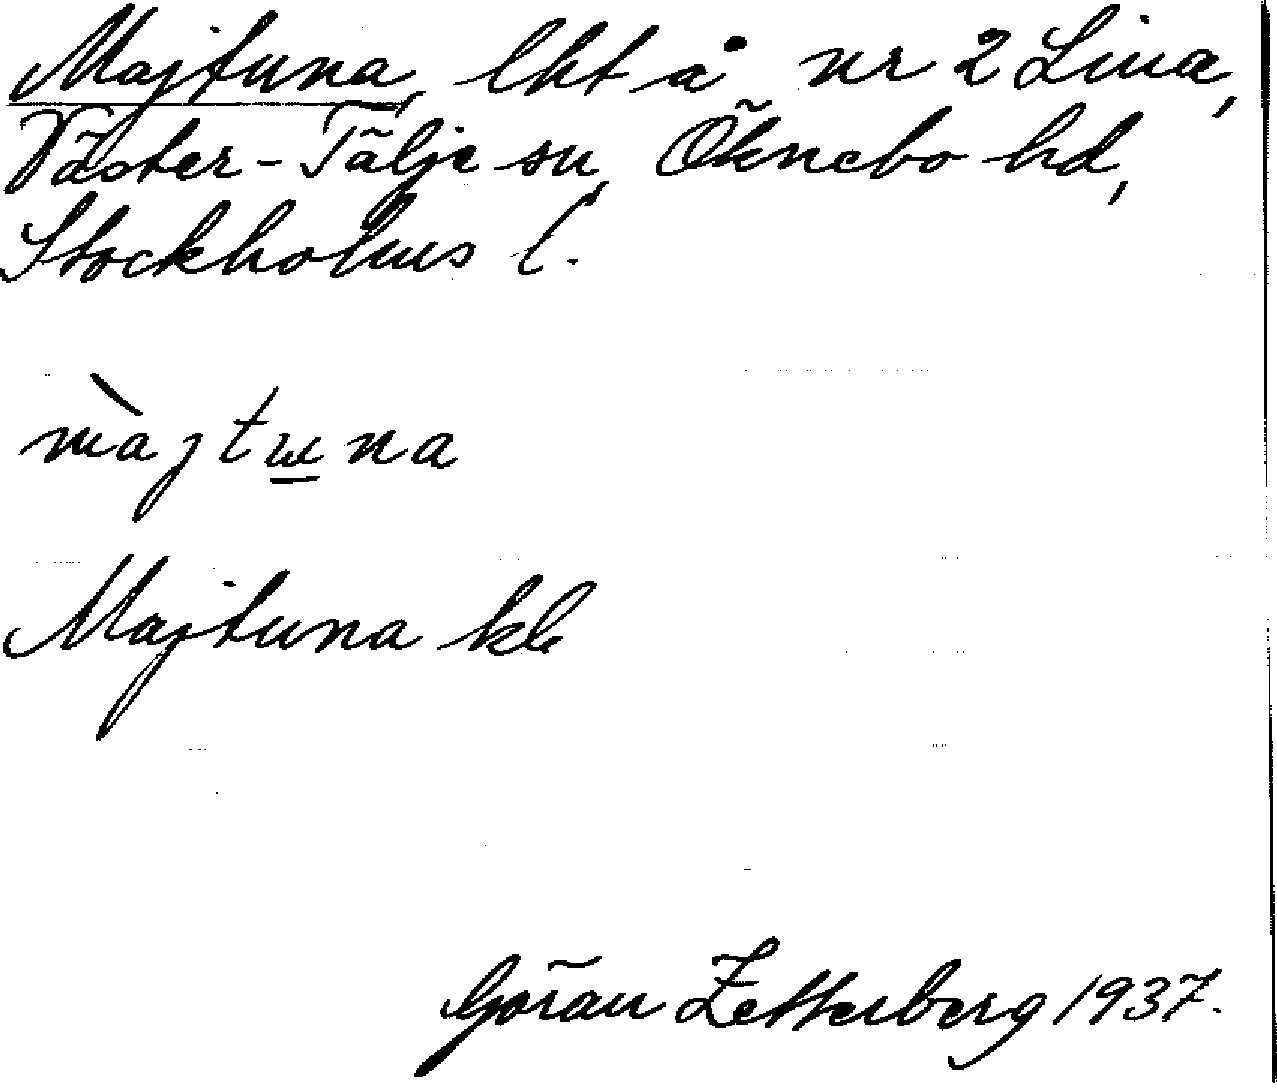 Majtuna, lht å nr 2 Lina,
Väster-Tälje sn, Öknebo hd,
Stockholms l.
màjtɯna
Majtuna kb
Göran Zetterberg 1937.